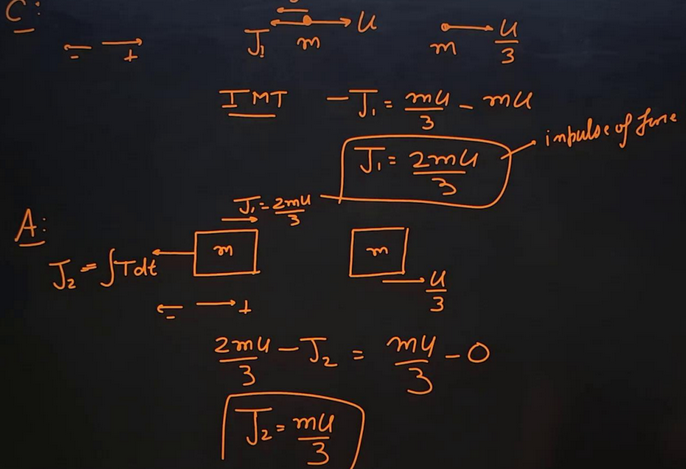 C:
J₁ m u m u/3
- +
IMT -J₁ = mu/3 - mu
J₁ = 2mu/3 inpulse of
J₁ = 2mu/3
A:
J₂ = ∫Tdt m m
u/3
- +
2mu/3 - J₂ = mu/3 - 0
J₂ = mu/3